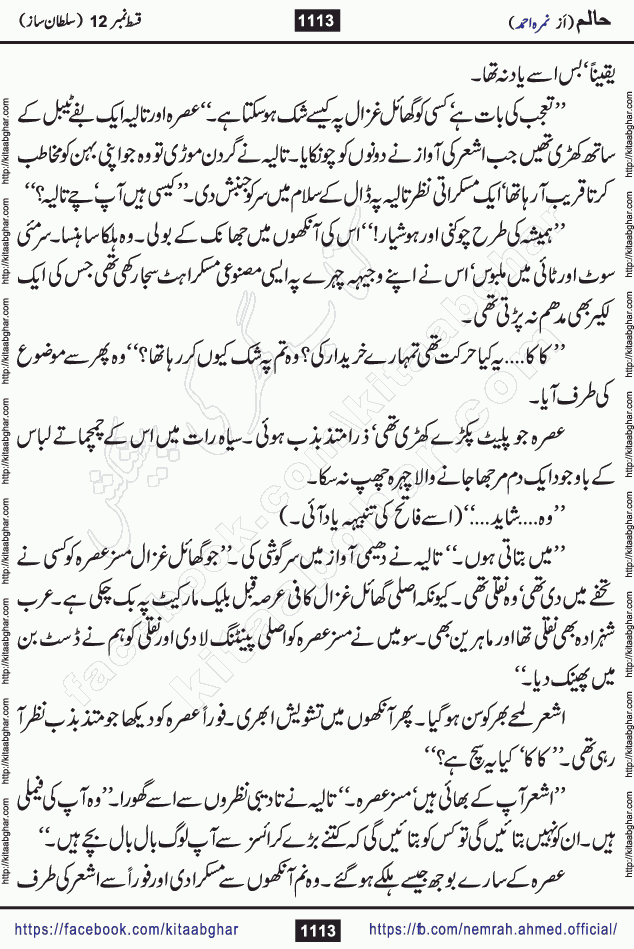 حالم (از نمرہ احمد) 1113 قسط نمبر 12 (سلطان ساز)
یقیناً‘ بس اسے یاد نہ تھا۔
’’تعجب کی بات ہے‘ کسی کو گھائل غزال پہ کیسے شک ہو سکتا ہے۔‘‘ عصرہ اور تالیہ ایک بفے ٹیبل کے
ساتھ کھڑی تھیں جب اشعر کی آواز نے دونوں کو چونکایا۔ تالیہ نے گردن موڑی تو وہ جو اپنی بہن کو مخاطب
کرتا قریب آرہا تھا‘ ایک مسکراتی نظر تالیہ پہ ڈال کے سلام میں سر کو جنبش دی۔ ’’کیسی ہیں آپ‘ چے تالیہ؟‘‘
’’ہمیشہ کی طرح چوکنی اور ہوشیار!‘‘ اس کی آنکھوں میں جھانک کے بولی۔ وہ ہلکا سا ہنسا۔ سرمئی
سوٹ اور ٹائی میں ملبوس‘ اس نے اپنے وجیہہ چہرے پہ ایسی مصنوعی مسکراہٹ سجا رکھی تھی جس کی ایک
لکیر بھی مدھم نہ پڑتی تھی۔
’’کاکا.... یہ کیا حرکت تھی تمہارے خریدار کی؟ وہ تم پہ شک کیوں کر رہا تھا؟‘‘ وہ پھر سے موضوع
کی طرف آیا۔
عصرہ جو پلیٹ پکڑے کھڑی تھی‘ ذرا متذبذب ہوئی۔ سیاہ رات میں اس کے چمچماتے لباس
کے باوجود ایک دم مرجھا جانے والا چہرہ چھپ نہ سکا۔
’’وہ.... شاید....‘‘ (اسے فاتح کی تنبیہہ یاد آئی۔)
’’میں بتاتی ہوں۔‘‘ تالیہ نے دھیمی آواز میں سرگوشی کی۔ ’’جو گھائل غزال مسز عصرہ کو کسی نے
تحفے میں دی تھی‘ وہ نقلی تھی۔ کیونکہ اصلی گھائل غزال کافی عرصہ قبل بلیک مارکیٹ پہ بک چکی ہے۔ عرب
شہزادہ بھی نقلی تھا اور ماہرین بھی۔ سو میں نے مسز عصرہ کو اصلی پینٹنگ لا دی اور نقلی کو ہم نے ڈسٹ بن
میں پھینک دیا۔‘‘
اشعر لمحے بھر کو سن ہو گیا۔ پھر آنکھوں میں تشویش ابھری۔ فوراً عصرہ کو دیکھا جو متذبذب نظر آ
رہی تھی۔ ’’کاکا‘ کیا یہ سچ ہے؟‘‘
’’اشعر آپ کے بھائی ہیں‘ مسز عصرہ۔‘‘ تالیہ نے تادیبی نظروں سے اسے گھورا۔ ’’وہ آپ کی فیملی
ہیں۔ ان کو نہیں بتائیں گی تو کس کو بتائیں گی کہ کتنے بڑے کرائسز سے آپ لوگ بال بال بچے ہیں۔‘‘
عصرہ کے سارے بوجھ جیسے ہلکے ہو گئے۔ وہ نم آنکھوں سے مسکرا دی اور فوراً سے اشعر کی طرف
https://facebook.com/kitaabghar 1113 https://fb.com/nemrah.ahmed.official/
http://kitaabghar.com http://kitaabghar.com http://kitaabghar.com http://kitaabghar.com http://kitaabghar.com http://kitaabghar.com http://kitaabghar.com http://kitaabghar.com
http://kitaabghar.com http://kitaabghar.com http://kitaabghar.com http://kitaabghar.com http://kitaabghar.com http://kitaabghar.com http://kitaabghar.com http://kitaabghar.com
کتاب گھر کی پیشکش
facebook.com/kitaabghar
kitaabghar.com